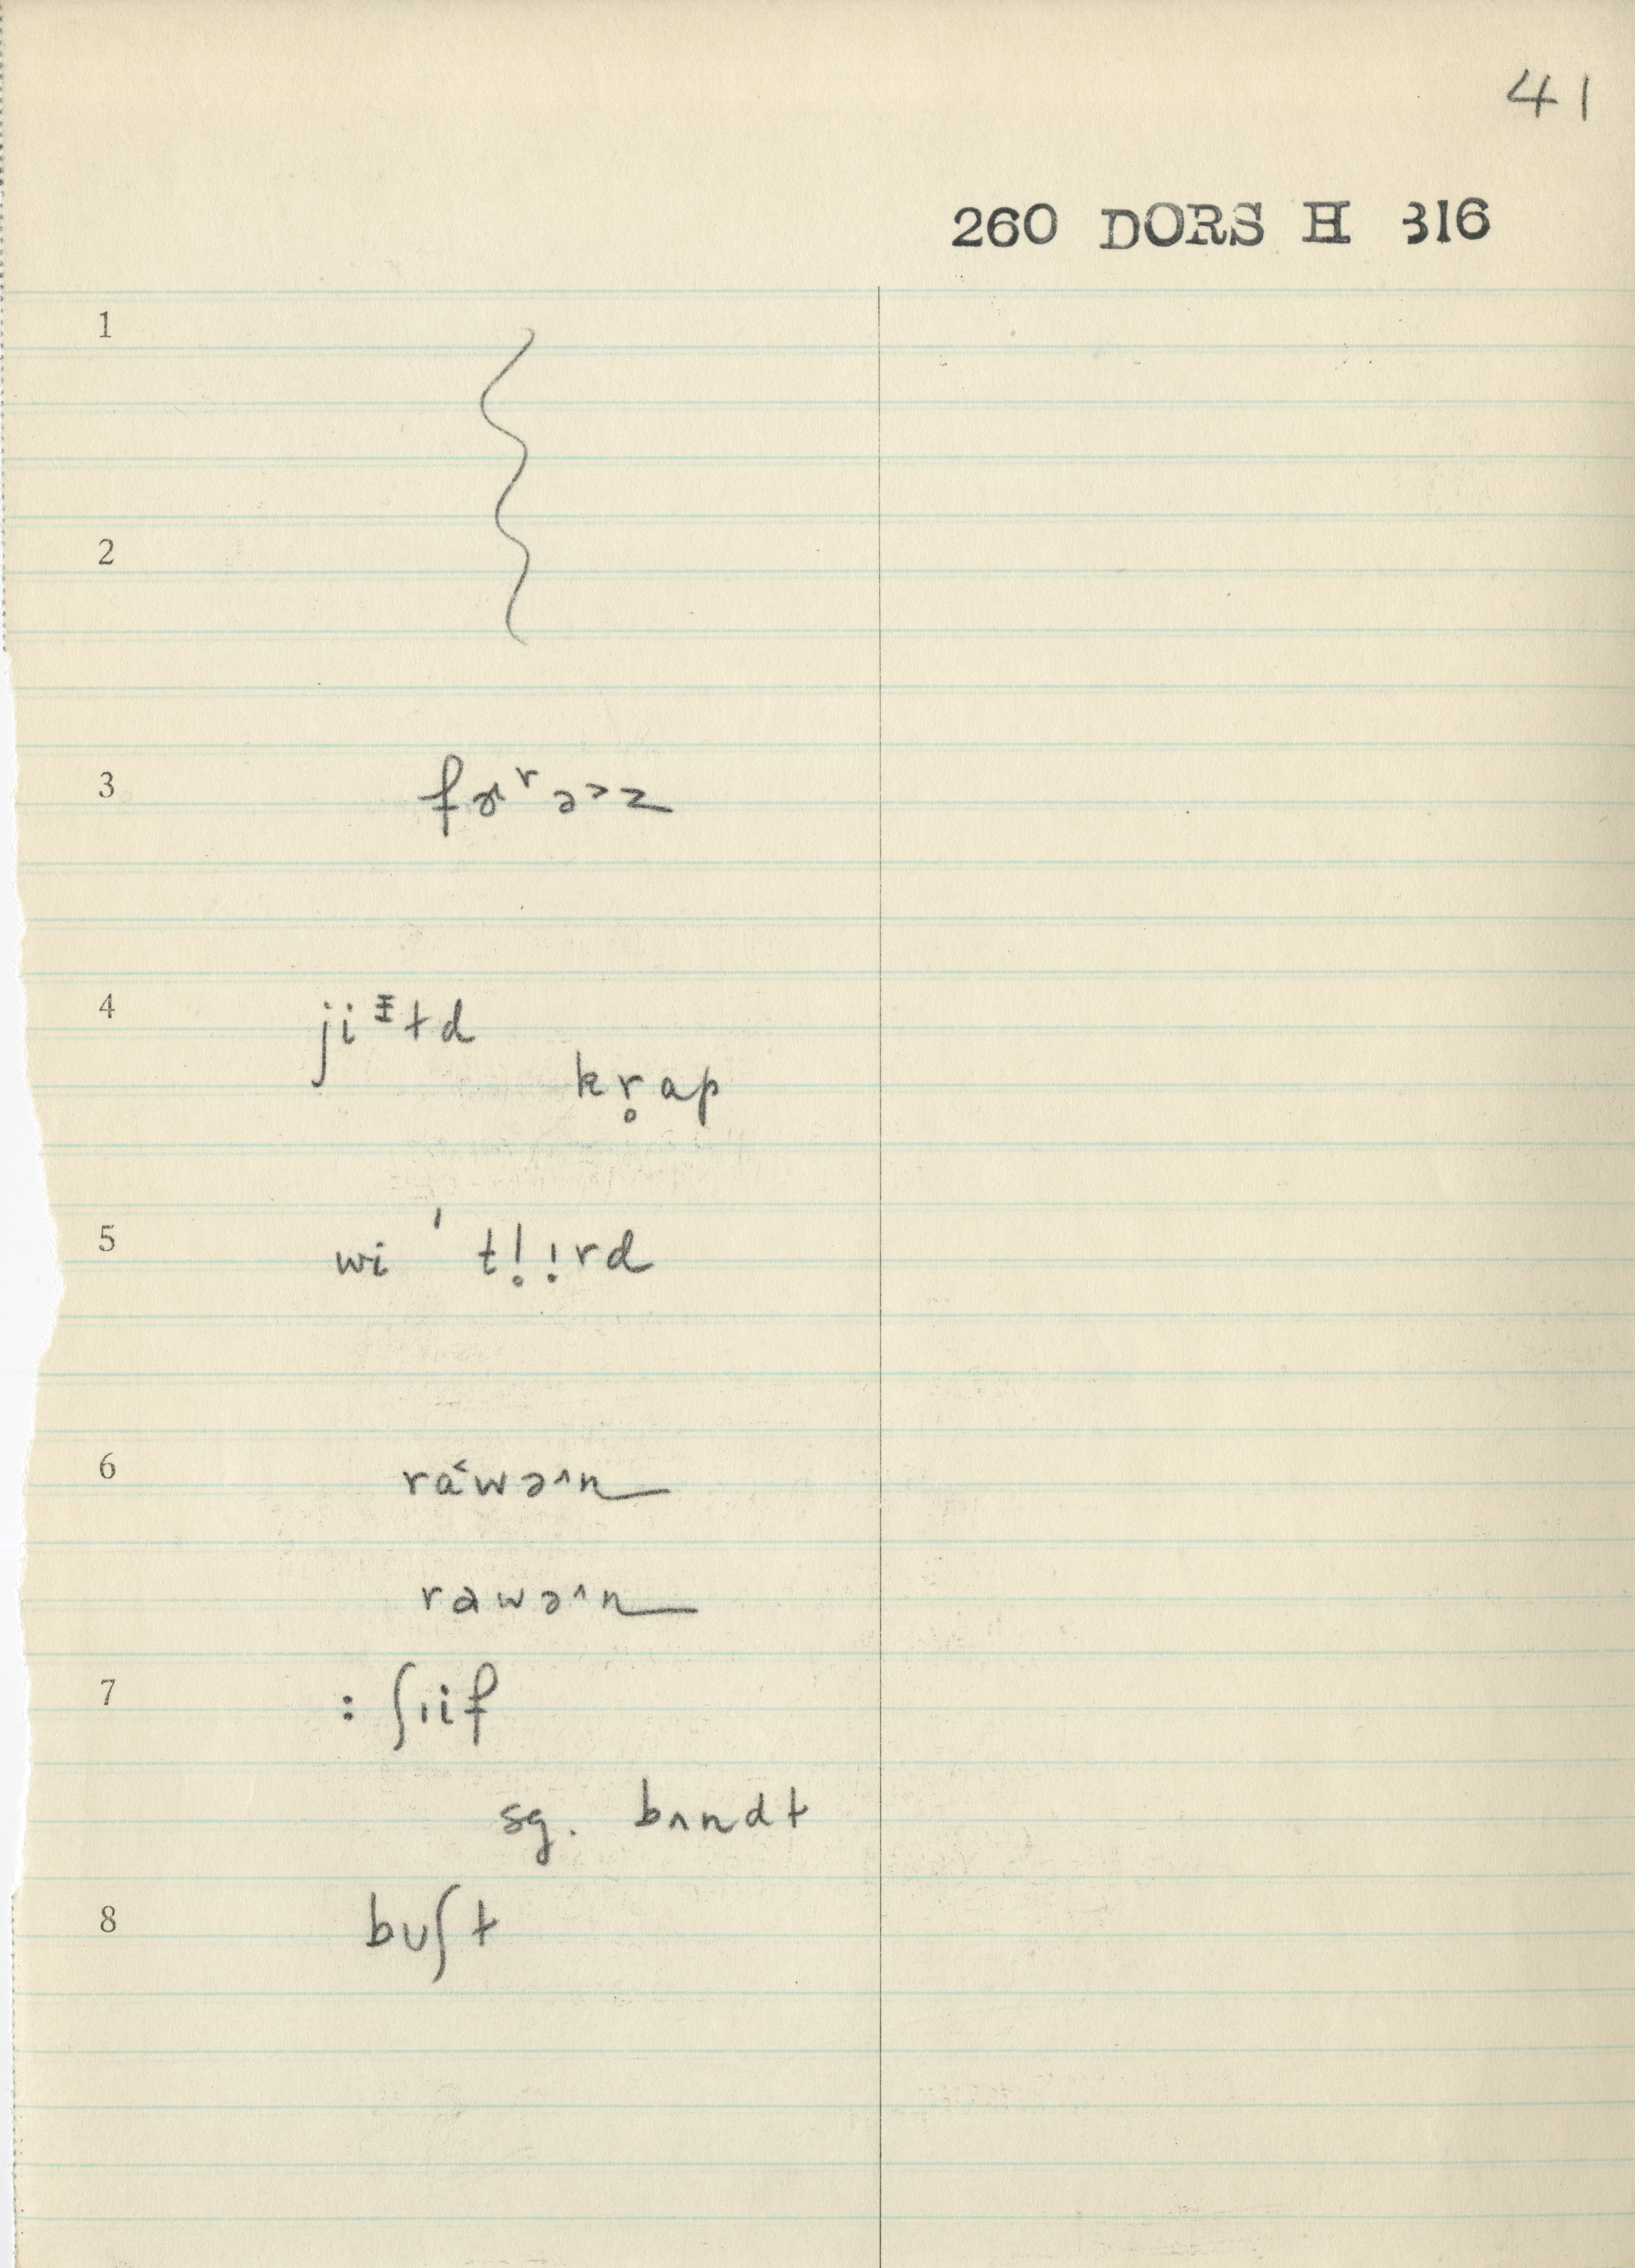 41
260 DORS H 316
1
2
3 fɚʳə˃z
4 jiᵻtd
kr̥ap
5 wi ˈtl̥ı̣rd
6 ra˂wə˄n
rawə˄n
7 : ʃıif
sg. bʌndt
8 buʃt